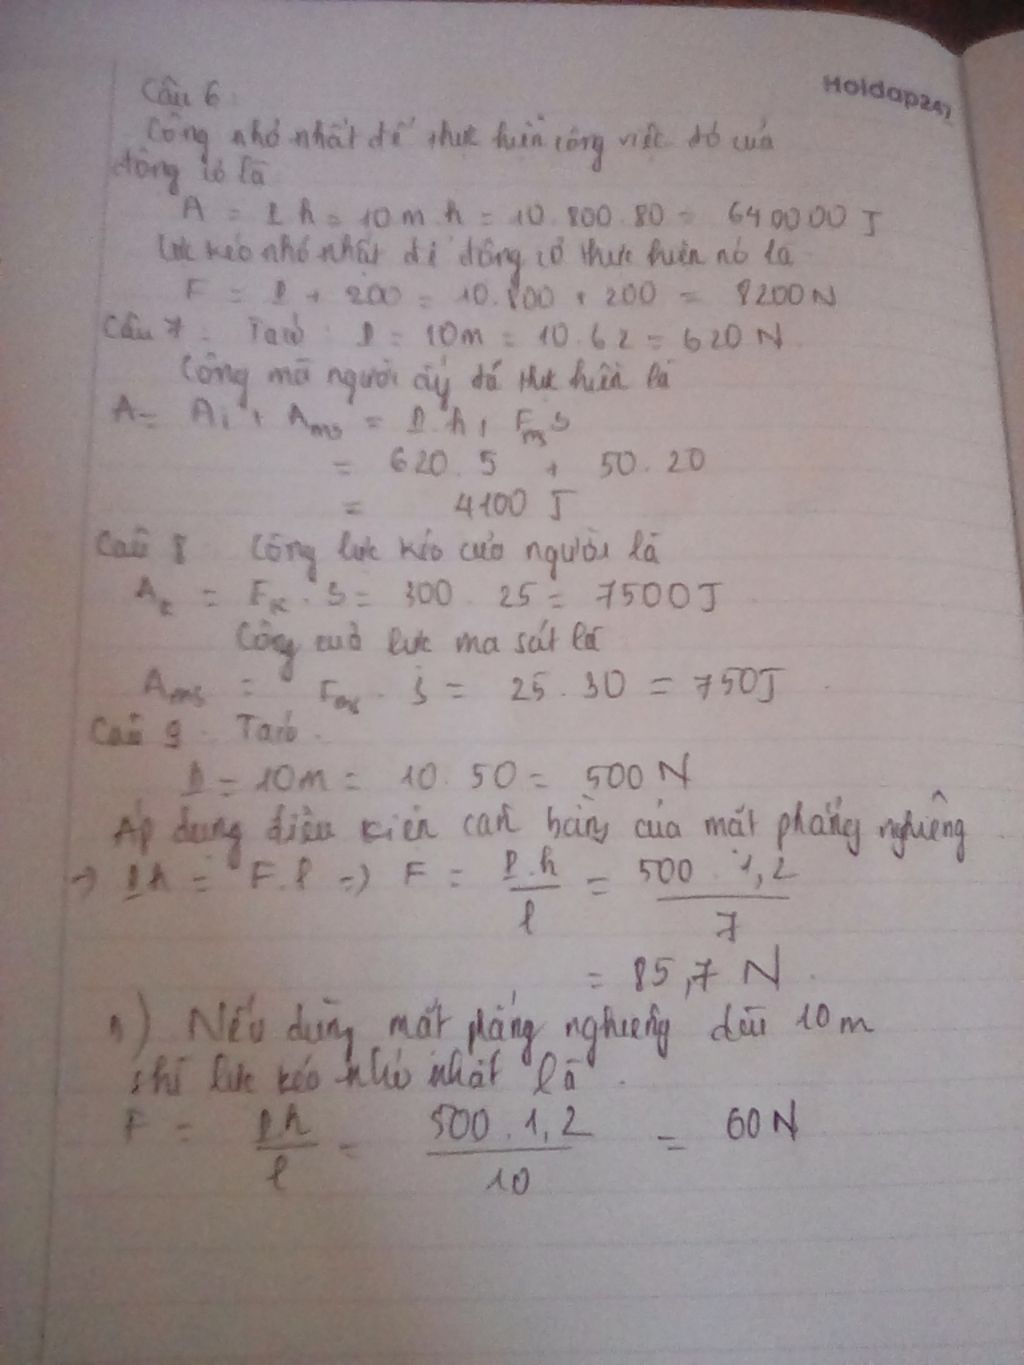 Hoidap247
Câu 6
Công nhỏ nhất để thực hiện công việc đó của
động cơ là
A = P.h = 10m.h = 10.800.80 = 640000 J
Lực kéo nhỏ nhất để động cơ thực hiện nó là
F = P + 200 = 10.800 + 200 = 8200N
Câu 7. Ta có: P = 10m = 10.62 = 620 N.
Công mà người ấy đã thực hiện là
A = Ai + Ams = P.h + Fms s
= 620.5 + 50.20
= 4100 J
Câu 8 Công lực kéo của người là
Ak = Fk . S = 300 . 25 = 7500J
Công của lực ma sát là
Ams = Fms . s = 25.30 = 750J
Câu 9. Ta có.
P = 10m = 10.50 = 500 N
Áp dụng điều kiện cân bằng của mặt phẳng nghiêng
→ Ph = F.l => F = P.h / l = 500.1,2 / 7
= 85,7 N.
) Nếu dùng mặt phẳng nghiêng dài 10m
thì lực kéo nhỏ nhất là.
F = P.h / l = 500.1,2 / 10 = 60N